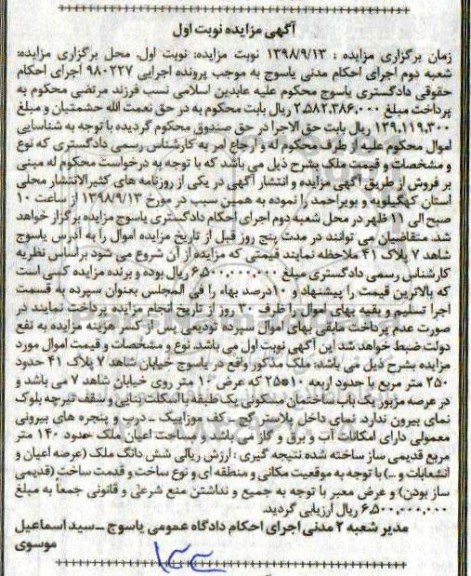 آگهی مزایده نوبت اول
زمان برگزاری مزایده : ۱۳۹۸/۹/۱۳ نوبت مزایده: نوبت اول. محل برگزاری مزایده:
شعبه دوم اجرای احکام مدنی یاسوج به موجب پرونده اجرایی ۹۸۰۲۲۷ اجرای احکام
حقوقی دادگستری یاسوج محکوم علیه عابدین اسلامی نسب فرزند مرتضی محکوم به
پرداخت مبلغ ۲,۵۸۲,۳۸۶,۰۰۰ ریال بابت محکوم به در حق نعمت الله حشمتیان و مبلغ
۱۳۹,۱۱۹,۳۰۰ ریال بابت حق الاجرا در حق صندوق محکوم گردیده با توجه به شناسایی
اموال محکوم علیه از طرف محکوم له و ارجاع امر به کارشناس رسمی دادگستری که نوع
و مشخصات و قیمت ملک بشرح ذیل می باشد که با توجه به درخواست محکوم له مبنی
بر فروش از طریق آگهی مزایده و انتشار آگهی در یکی از روزنامه های کثیرالانتشار محلی
استان کهگیلویه و بویراحمد را نموده به همین سبب در مورخ ۱۳۹۸/۹/۱۳ از ساعت ۱۰
صبح الی ۱۱ ظهر در محل شعبه دوم اجرای احکام دادگستری یاسوج مزایده برگزار خواهد
شد. متقاضیان می توانند در مدت پنج روز قبل از تاریخ مزایده اموال را به آدرس یاسوج
شاهد ۷ پلاک ۴۱ ملاحظه نمایند قیمتی که مزایده از آن شروع می شود براساس نظریه
کارشناس رسمی دادگستری مبلغ ۶,۵۰۰,۰۰۰,۰۰۰ ریال بوده و برنده مزایده کسی است
که بالاترین قیمت را پیشنهاد و ۱۰درصد بهاء را فی المجلس بعنوان سپرده به قسمت
اجرا تسلیم و بقیه بهای اموال را ظرف ۳۰ روز از تاریخ انجام مزایده پرداخت نمایند در
صورت عدم پرداخت مابقی بهای اموال سپرده تودیعی پس از کسر هزینه مزایده به نفع
دولت ضبط خواهد شد این آگهی نوبت اول می باشد. نوع و مشخصات و قیمت اموال مورد
مزایده بشرح ذیل می باشد: ملک مذکور واقع در یاسوج خیابان شاهد ۷ پلاک ۴۱ حدود
۲۵۰ متر مربع با حدود اربعه ۱۰*۲۵ که عرض ۱۰ متر روی خیابان شاهد ۷ می باشد و
در عرصه مزبور یک باب ساختمان مسکونی یک طبقه با اسکلت بنایی و سقف تیرچه بلوک
نمای بیرون ندارد. نمای داخل پلاستر گچ - کف موزاییک - درب و پنجره های بیرونی
معمولی دارای امکانات آب و برق و گاز می باشد و مساحت اعیان ملک حدود ۱۴۰ متر
مربع قدیمی ساز ساخته شده نتیجه گیری : ارزش ریالی شش دانگ ملک (عرصه اعیان و
انشعابات و ...) با توجه به موقعیت مکانی و منطقه ای و نوع ساخت و قدمت ساخت (قدیمی
ساز بودن) و عرض معبر با توجه به جمیع و نداشتن منع شرعی و قانونی جمعاً به مبلغ
۶,۵۰۰,۰۰۰,۰۰۰ ریال ارزیابی گردید.
مدیر شعبه ۲ مدنی اجرای احکام دادگاه عمومی یاسوج - سید اسماعیل
موسوی